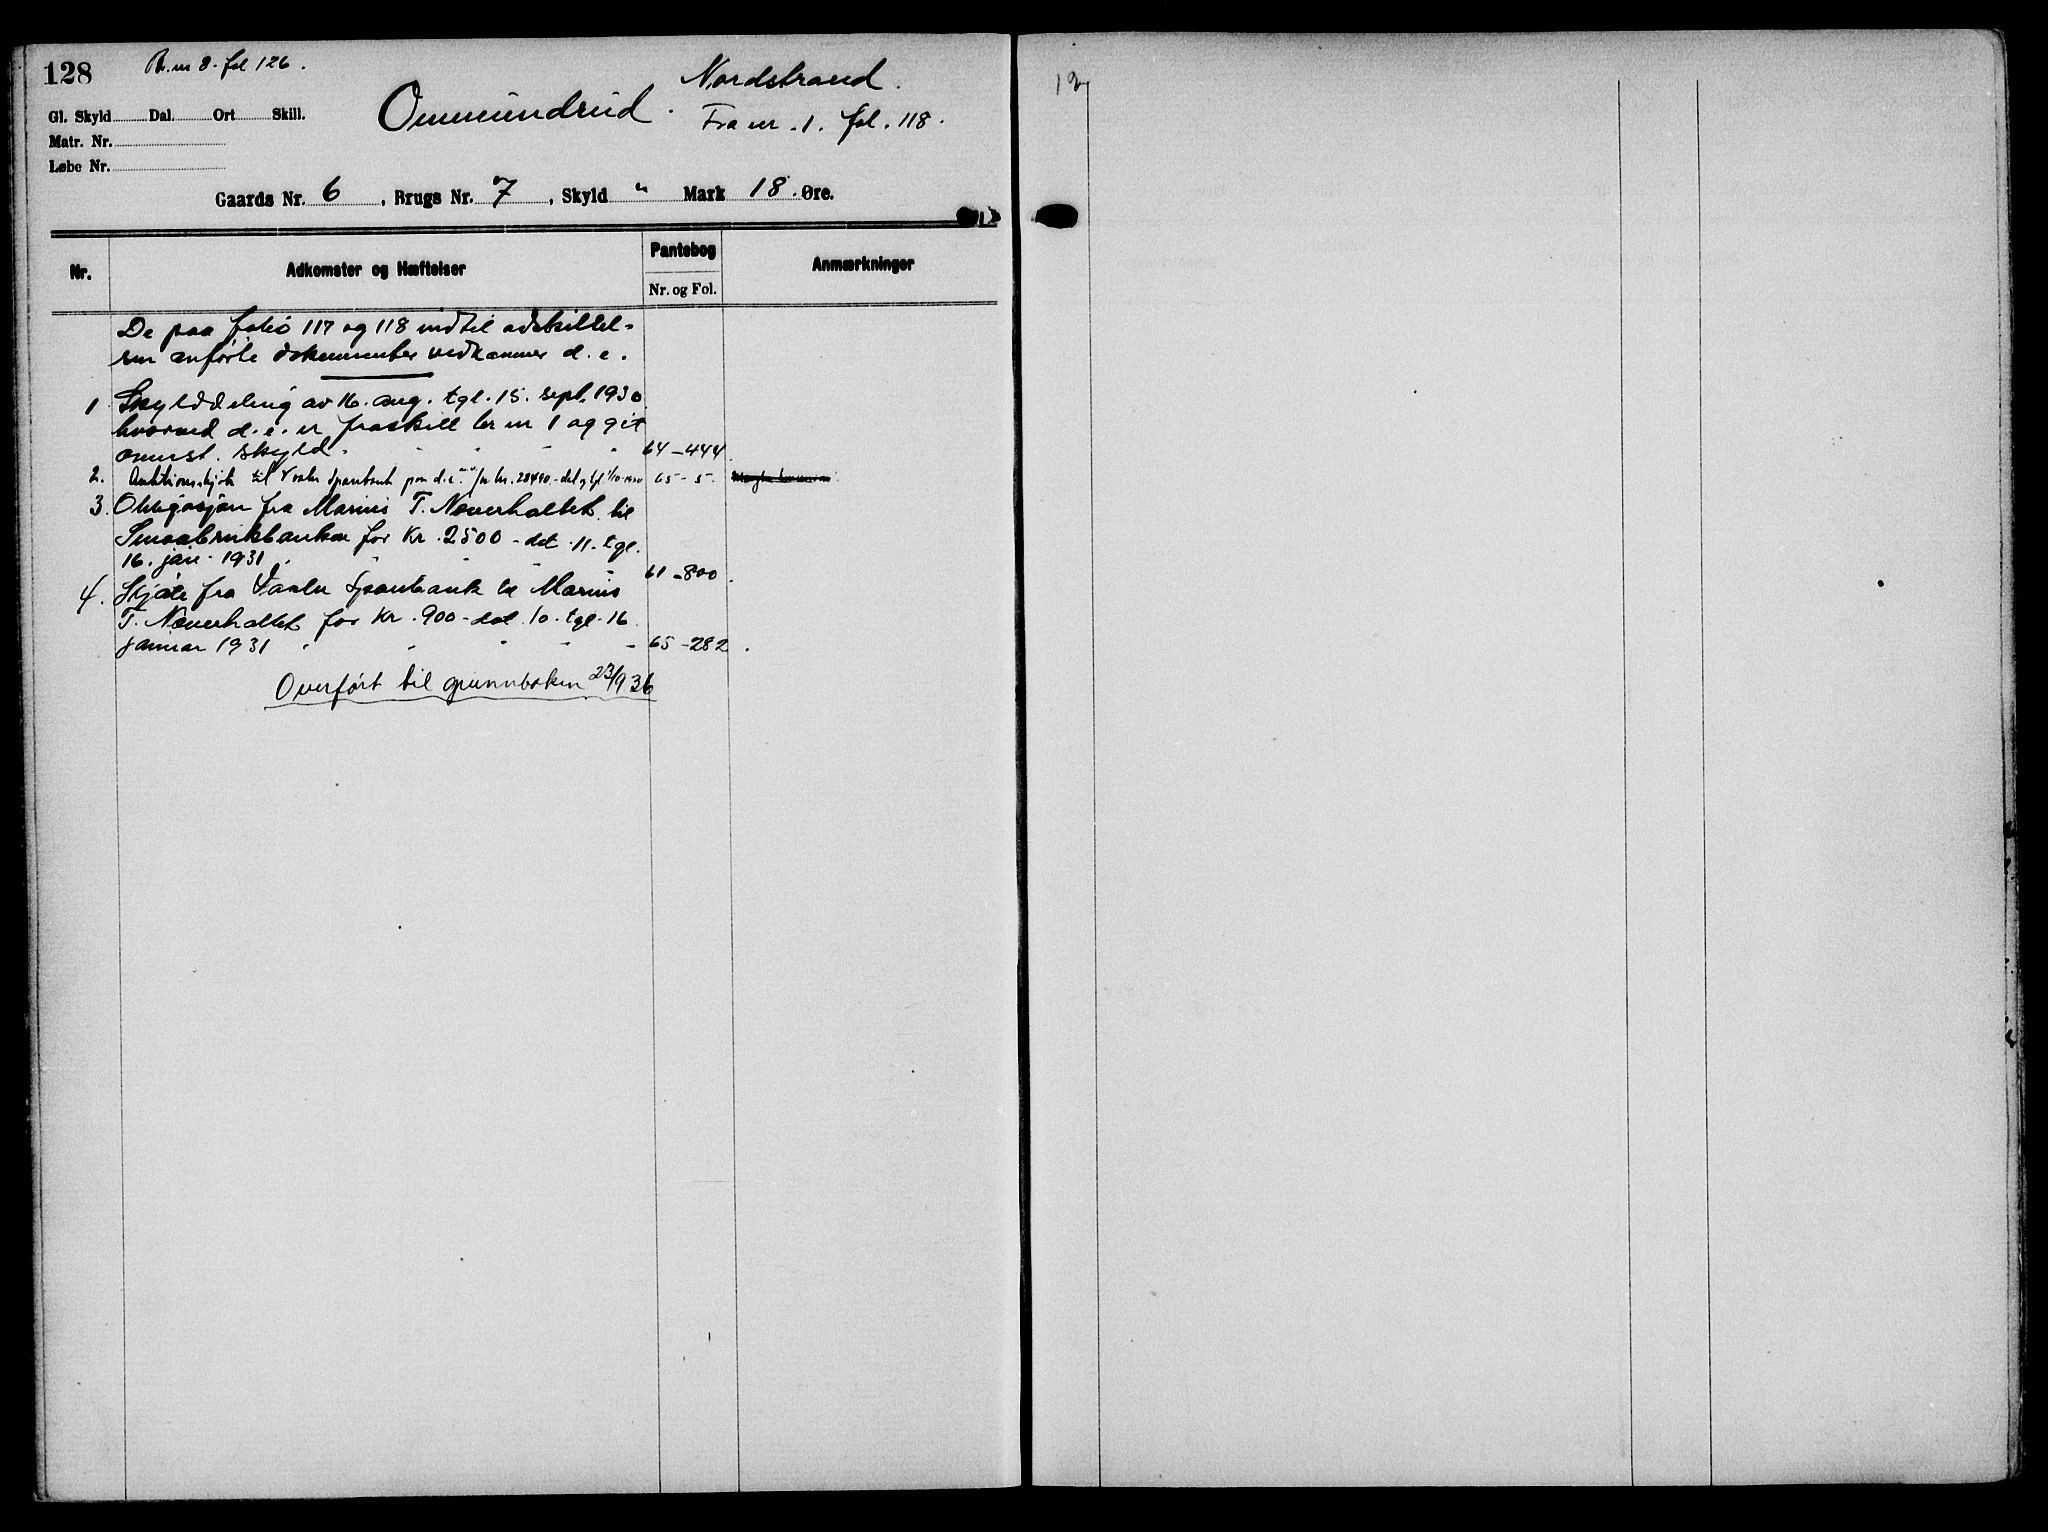 128
Br. nr 8. fol 126.
Nordstrand.
Ommundrud.
Fra nr. 1. fol. 118.
Gl. Skyld Dal. Ort Skill.
Matr. Nr.
Løbe Nr.
Gaards Nr. 6, Brugs Nr. 7, Skyld " Mark 18. Øre.
Nr. Adkomster og Hæftelser Pantebog Nr. og Fol. Anmærkninger
De paa folio 117 og 118 indtil adskillel-
sen anførte dokumenter vedkommer d. e.
1 Skylddeling av 16. aug. tgl. 15. sept. 1930
hvorved d. e. er fraskilt br nr 1 og git
omerst. skyld. 64-444.
2. Auktionsskjøte til Vaaler Sparebank paa d. e. for kr. 28490.- dat og tgl 1/10-1930 65-5
3. Obligasjon fra Marius T. Næverholtet til
Smaabrukbanken for Kr. 2500 - dat. 11. tgl.
16. jan. 1931. 61-800.
4. Skjøte fra Vaaler Sparebank til Marius
T. Næverholtet for Kr. 900 - dat. 10. tgl. 16.
januar 1931 65-282.
Overført til grunnboken 23/9 36
12